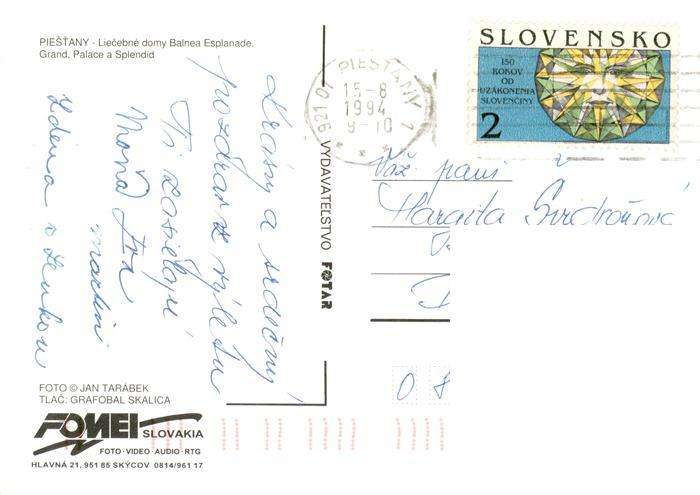 PIEŠŤANY - Liečebné domy Balnea Esplanade,
Grand, Palace a Splendid
Krásny a srdečný
pozdrav z výletu
Ti zasielajú
Moňa Iva
martin
Zdena s Lenkou
FOTO © JAN TARÁBEK
TLAČ: GRAFOBAL SKALICA
FOMEI SLOVAKIA
FOTO·VIDEO·AUDIO·RTG
HLAVNÁ 21, 951 85 SKÝCOV 0814/961 17
VYDAVATEĽSTVO FOTAR
921 01 PIEŠŤANY 1
15-8
1994
9-10
SLOVENSKO
150
ROKOV
OD
UZÁKONENIA
SLOVENČINY
2
Váž. pani
Margita
0 8